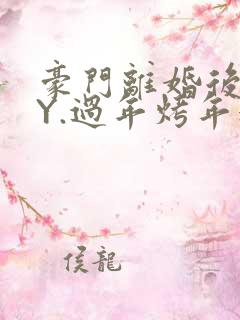 豪門離婚後
Y.過年烤年
侯龍